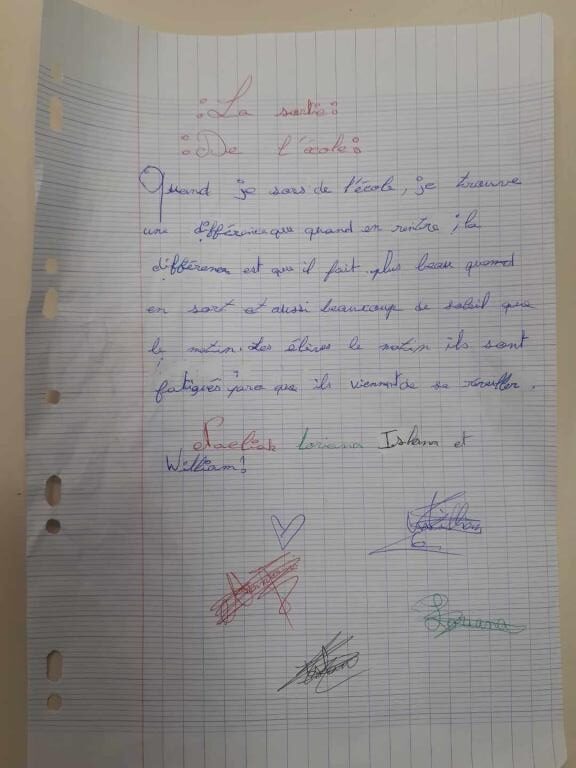 La sortie
De l'école
Quand je sors de l'école, je trouve
une différence que quand en rentre ; la
différence est que il fait plus beau quand
en sort et aussi beaucoup de soleil que
le matin. Les élèves le matin ils sont
fatigués parce que ils viennent de se réveiller.
Loriana Islam et
William!
William
Loriana